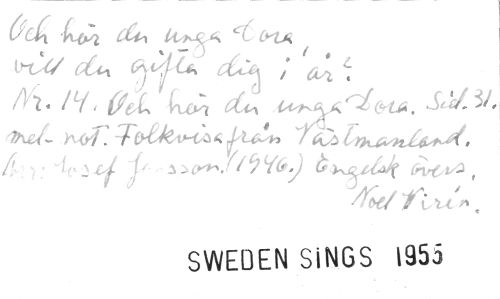 Och hör du unga Dora,
vill du gifta dig i år?
Nr. 14. Och hör du unga Dora. Sid. 31.
mel-not. Folkvisa från Västmanland.
Arr: Josef Jonsson. (1946.) Engelsk övers.
Noel Wirén.
SWEDEN SiNGS 1955